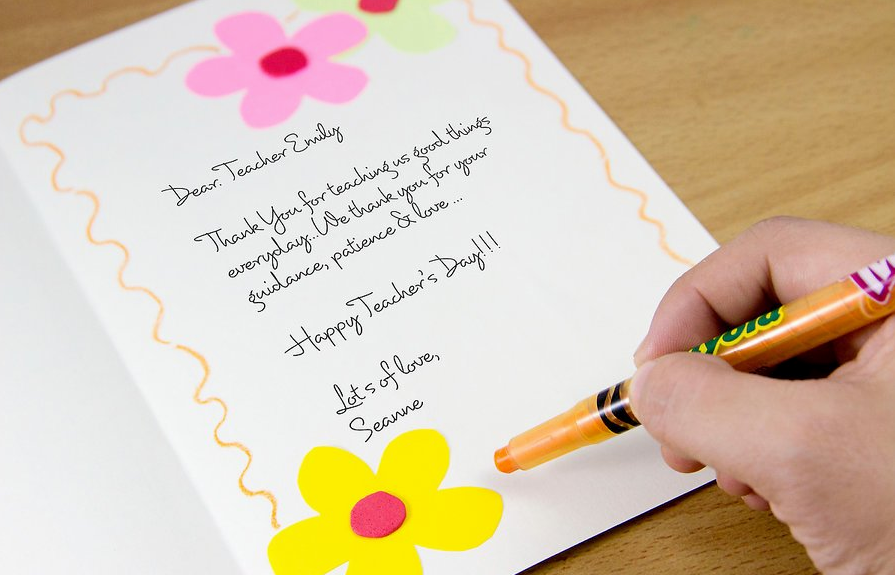 Dear. Teacher Emily
Thank You for teaching us good things
everyday...We thank you for your
guidance, patience & love ...
Happy Teacher's Day!!!
Lots of love,
Seanne